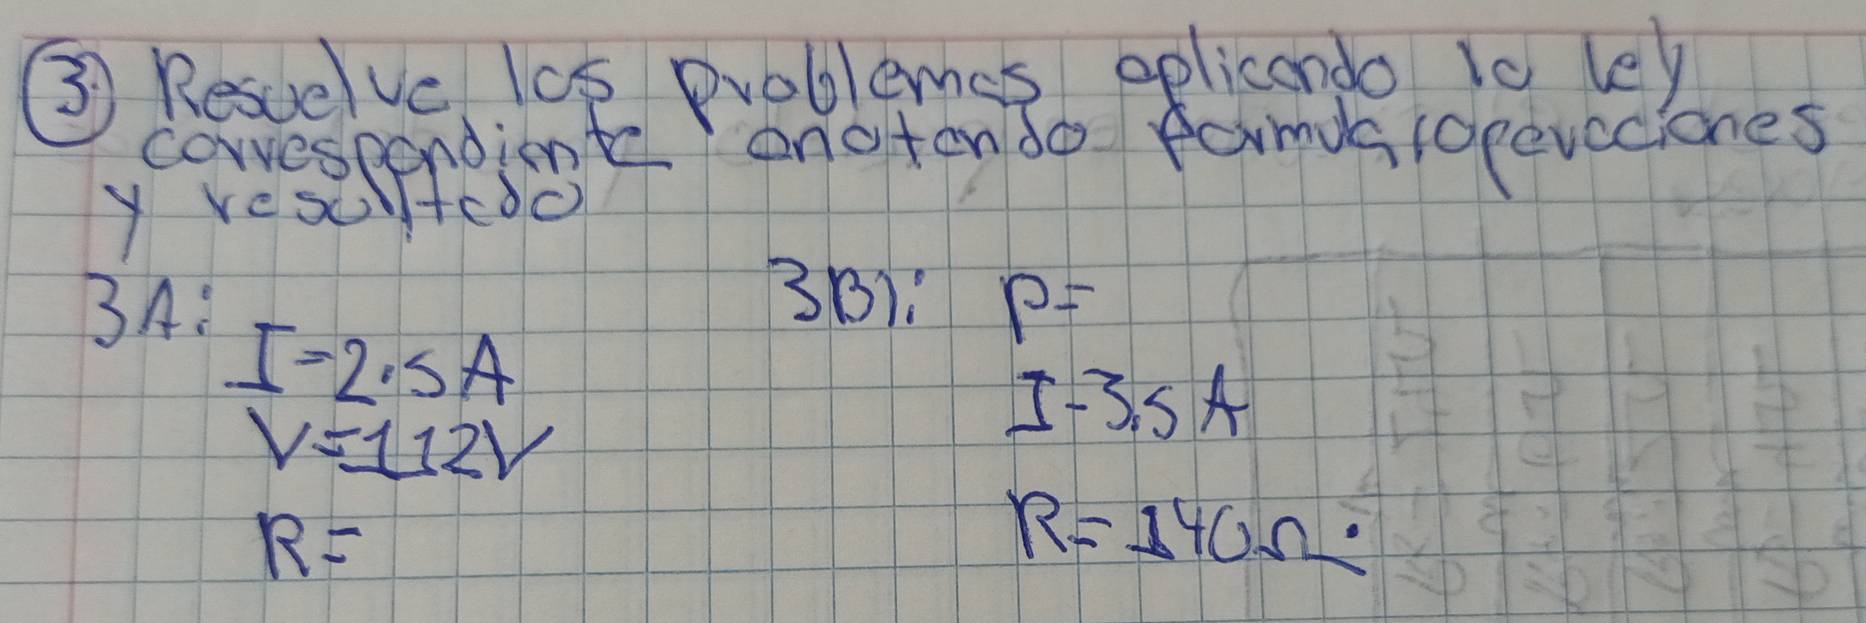 3. Resuelve los problemas aplicando la ley
correspondiente anotando formula, operaciones
y resultado
3A:
I=2.5A
V=112V
R=
3B): P=
I-3.5A
R=140Ω.